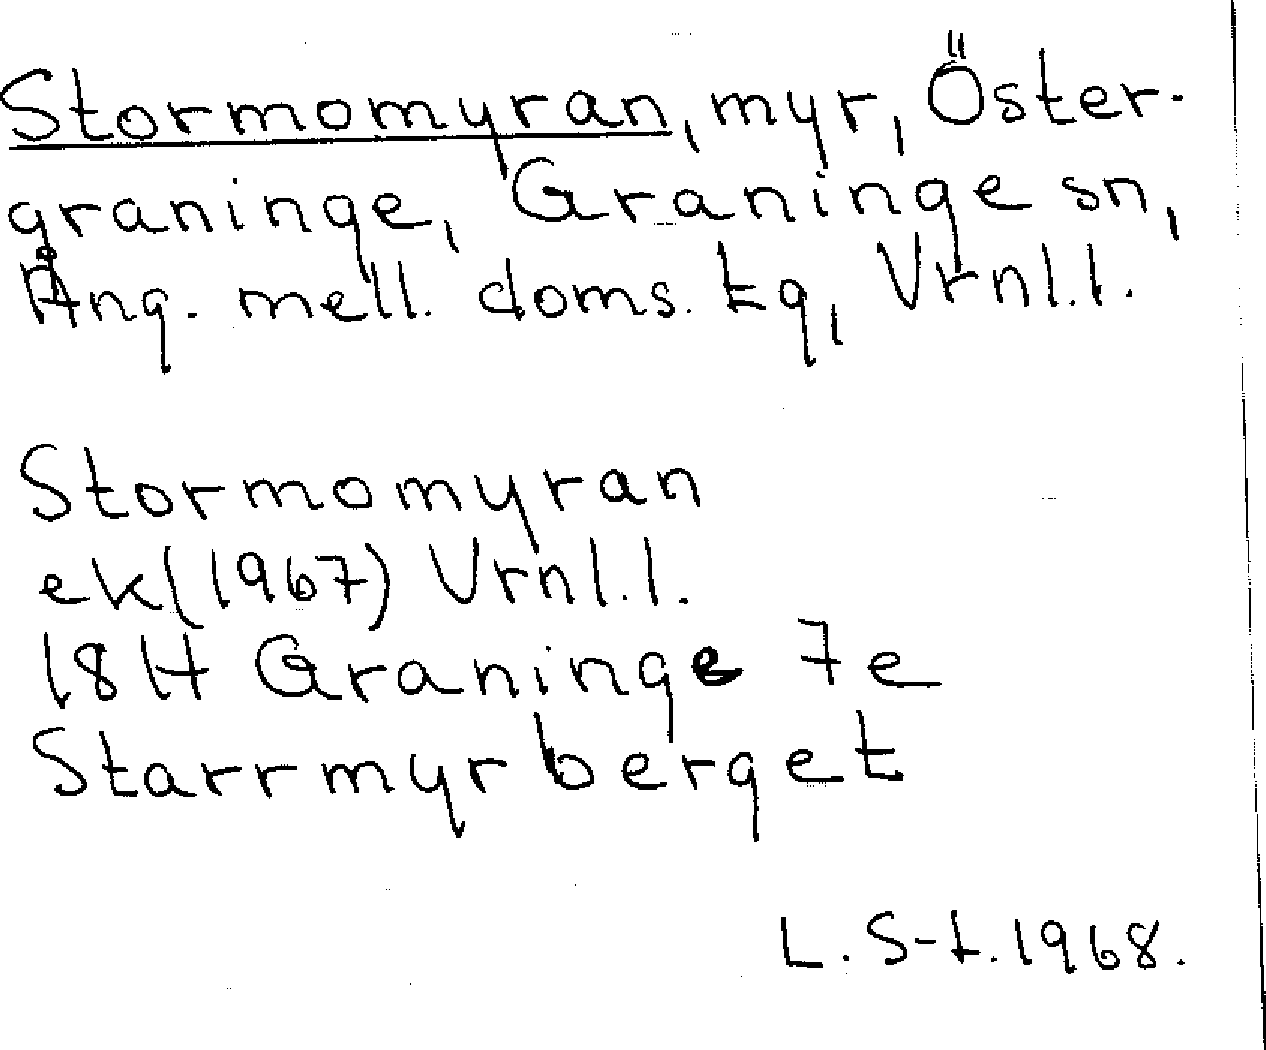 Stormomyran, myr, Öster-
graninge, Graninge sn,
Ång. mell. doms. tg, Vrnl.l.
Stormomyran
ek(1967) Vrnl.l.
18H Graninge 7e
Starrmyrberget
L. S-t. 1968.